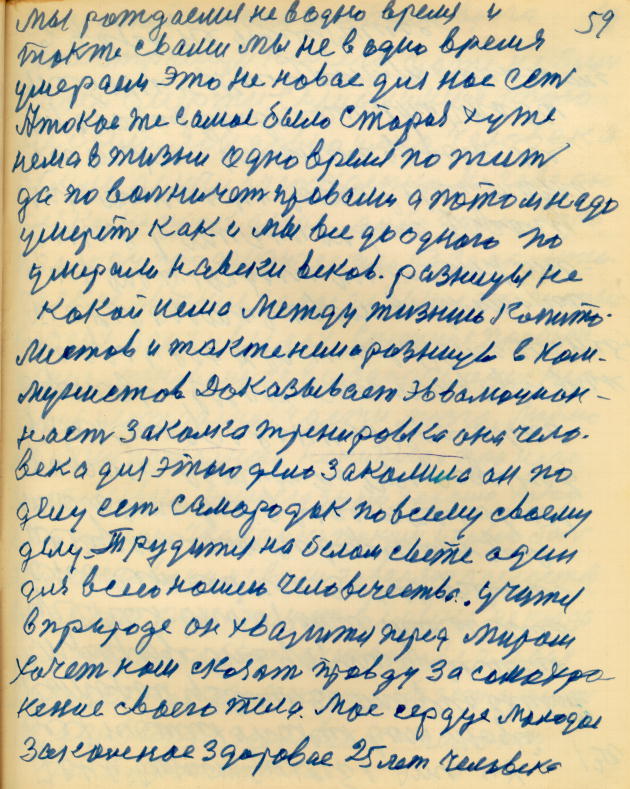 мы рождаемся не водно время и 59
также свами мы не в одно время
умераем это не новое для нас ест
А токое же самое было старое хуже
нема в жизни одно время по жит
да по волничет провами а потом надо
умерет как и мы все доодного по
умерали навеки веков. разницы не
какой нема между жизнию Капито-
листов и также нема разницы в ком-
мунистов Доказывает Эвалюцион-
наст закалка тренировка она чело-
века для этого дела закалила он по
делу ест самородок повсему своему
делу Трудится на белом свете один
для всего нашего человечества. учится
в природе он хвалится перед миром
хочет нам сказат правду за самохра
нение своего тела. Мое сердце молодое
закаленое здоровое 25 лет человека